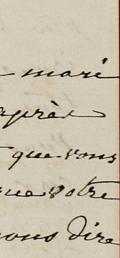 mari
après
que vous
que votre
vous dire